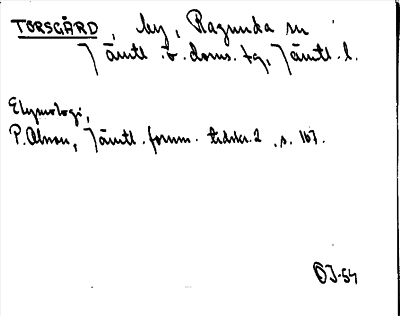 TORSGÅRD, by, Ragunda sn
Jämtl. ö. doms. tg, Jämtl. l.
Etymologi,
P. Olsson, Jämtl. fornm. tidskr. 2, s. 107.
OJ-54